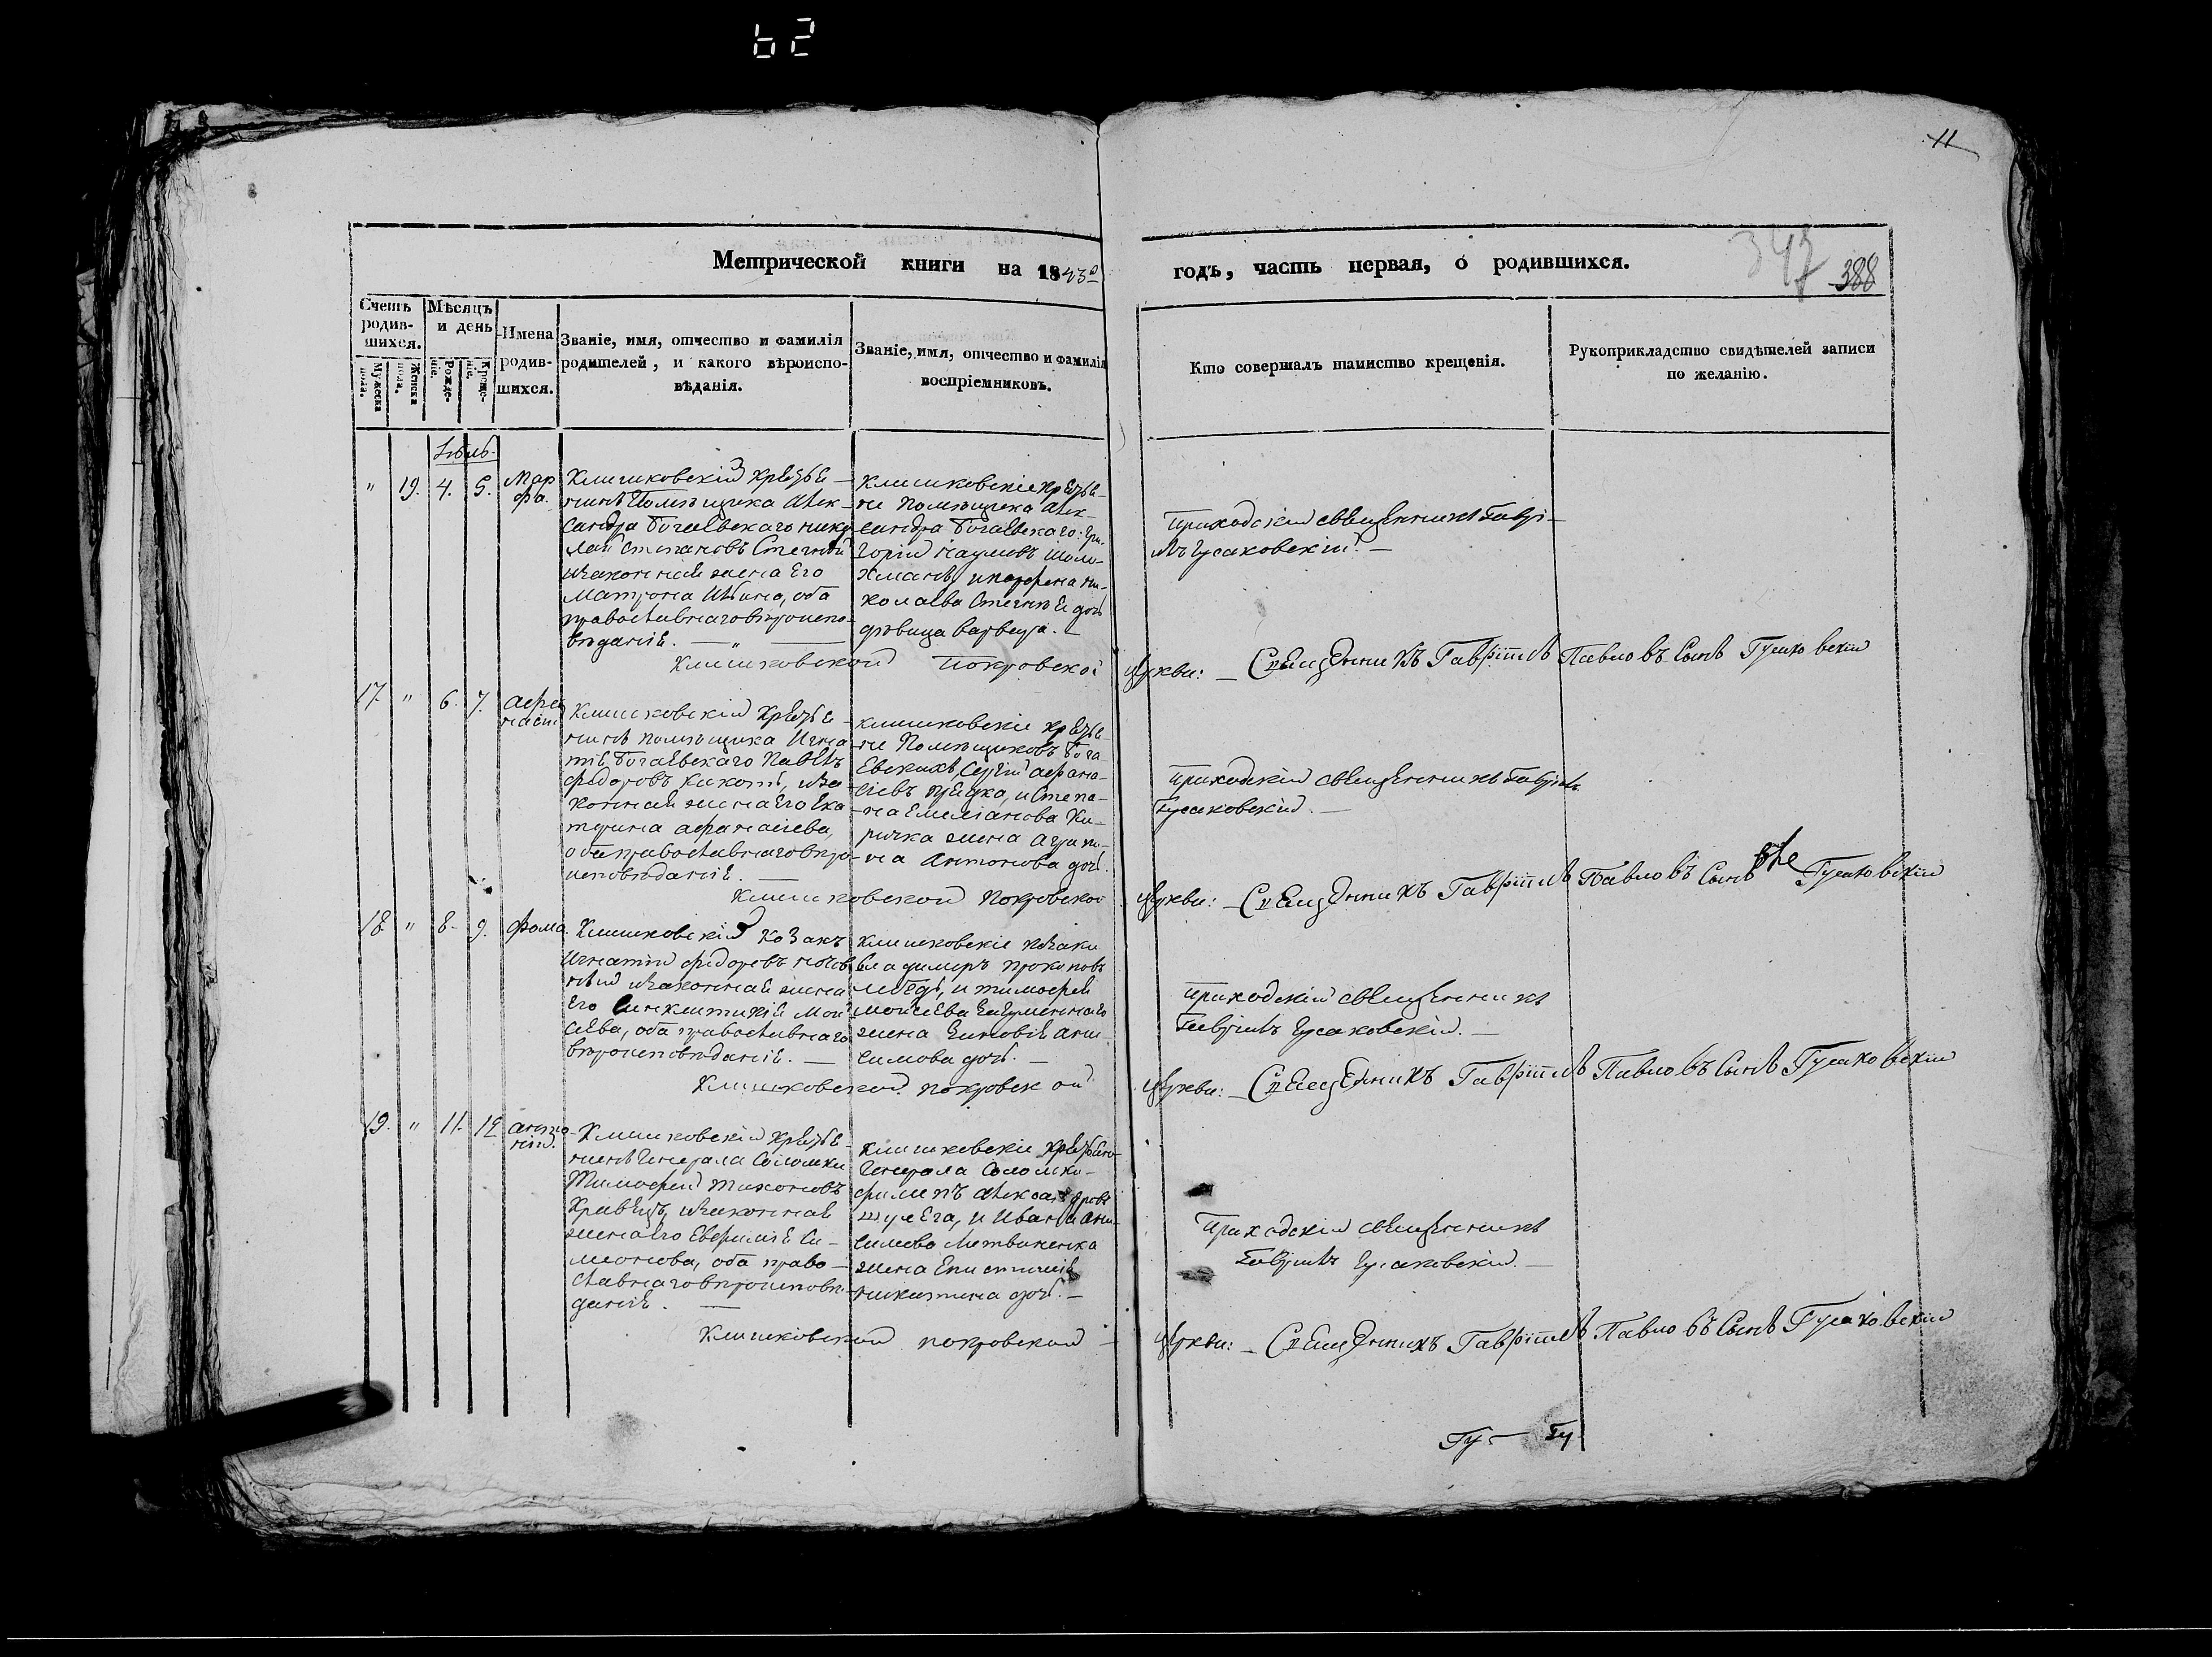 62
11
Метрической книги на 1843º
годъ, часть первая, о родившихся.
347 388
Счетъ родив-шихся.
Мужеска пола.
Женска пола.
Мѣсяцъ и день
Рожде-ніе.
Креще-ніе.
Имена родив-шихся.
Званіе, имя, отчество и фамилія
родителей, и какого вѣроиспо-
вѣданія.
Званіе, имя, отчество и фамилія
воспріемниковъ.
Кто совершалъ таинство крещенія.
Рукоприкладство свидѣтелей записи
по желанію.
" 19. 4. 5. Мар
фа.
Клишковскій крестья-
нинъ Помѣщика Алек-
сандра Богаевскаго Нико
лай Степановъ
изаконная жена Его
Матрона, оба
православнаго вѣроиспо-
вѣданія. — " —
Клишковскіе крестья-
не Помѣщика Алек-
сандра Богаевскаго: Гри-
горій Наумовъ
Ни-
колаева дочь
дѣвица
Приходскій священникъ Гаврі-
илъ Гусаковскій. —
Клишковской Покровской церкви: — Священникъ Гавріилъ Павловъ сынъ Гусаковскій
17. " 6. 7. Афа
насій
Клишковскій крестья-
нинъ помѣщика Игна
тія Богаевскаго Павелъ
Федоровъ иза
конная жена Его Ека
терина Афанасіева,
оба православнаго вѣро-
исповѣданія. —
Клишковскіе крестья-
не Помѣщиковъ Бога
евскихъ, Сергій Афана-
сіевъ и Степа-
на Емеліанова Ки-
ричка жена Агрипи-
на Антонова дочь.
Приходскій священникъ Гавріилъ
Гусаковскій. —
Клишковской Покровской церкви: — Священникъ Гавріилъ Павловъ сынъ Гусаковскій
18. " 8. 9. Фома.
Клишковскій козакъ
Игнатій Федоровъ
изаконная жена
Его Синклитикія Мои
сеева, оба православнаго
вѣроисповѣданія. —
Клишковскіе козаки
Владимиръ Прокоповъ
Лебедь, и Тимофея
Моисеева
жена Зиновія Ани
симова дочь. —
Приходскій священникъ
Гавріилъ Гусаковскій. —
Клишковской Покровской церкви: — Священникъ Гавріилъ Павловъ сынъ Гусаковскій
19. " 11. 12 Анто
ній.
Клишковскій крестья-
нинъ Генерала Соломки
Тимофей Тихоновъ
Кравецъ, изаконная
жена его Евфимія Си-
меонова, оба право-
славнаго вѣроисповѣ-
данія. —
Клишковскіе крестьяне
Генерала Соломки
Филипъ Александровъ
Шулега, и Ивана Ани-
симова Литвиненка
жена Епистимія
Никитина дочь. —
Приходскій священникъ
Гавріилъ Гусаковскій. —
Клишковской Покровской — церкви: — Священникъ Гавріилъ Павловъ сынъ Гусаковскій
Гу — Гу